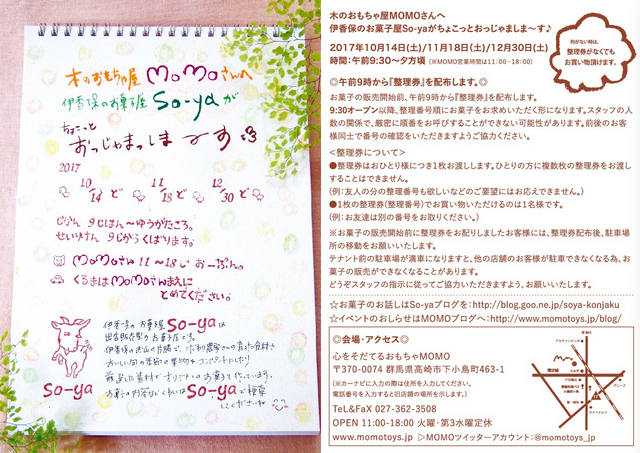 木のおもちゃ屋 MoMoさんへ
伊香保のお菓子屋 So-yaが
ちょこっと
おっじゃまっしま〜す
2017
10/14 ど 11/18 ど 12/30 ど
じかん 9じはん〜ゆうがたごろ。
せいりけん 9じからくばります。
MoMoさん 11〜18じ おーぷん。
くるまはMoMoさんまえに
とめてください。
伊香保のお菓子屋 So-yaは
お菓子の内容など くわしくは So-yaで検索
してくださいね
So-ya
木のおもちゃ屋MOMOさんへ
伊香保のお菓子屋So-yaがちょこっとおっじゃましま〜す♪
2017年10月14日(土)/11月18日(土)/12月30日(土)
時間:午前9:30〜夕方頃 (※MOMO営業時間は11:00−18:00)
列がない時は、
整理券がなくても
お買い物頂けます。
◎午前9時から『整理券』を配布します。◎
お菓子の販売開始前、午前9時から『整理券』を配布します。
9:30オープン以降、整理番号順にお菓子をお求めいただく形になります。スタッフの人
数の関係で、厳密に順番をお呼びすることができない可能性があります。前後のお客
様同士で番号の確認をいただきますようご協力ください。
<整理券について>
●整理券はおひとり様につき1枚お渡しします。ひとりの方に複数枚の整理券をお渡し
することはできません。
(例:友人の分の整理番号も欲しいなどのご要望にはお応えできません。)
●1枚の整理券(整理番号)でお買い物いただけるのは1名様です。
(例:お友達は別の番号をお取りください。)
※お菓子の販売開始前に整理券をお配りしましたお客様には、整理券配布後、駐車場
所の移動をお願いいたします。
テナント前の駐車場が満車になりますと、他の店舗のお客様が駐車できなくなる為、お
菓子の販売ができなくなることがあります。
どうぞスタッフの指示に従ってご協力いただきますよう、お願いします。
☆お菓子のお話しはSo-yaブログを:http://blog.goo.ne.jp/soya-konjaku
☆イベントのおしらせはMOMOブログへ:http://www.momotoys.jp/blog/
◎会場・アクセス◎
心をそだてるおもちゃMOMO
〒370-0074 群馬県高崎市下小鳥町463-1
(※カーナビに入力の際は住所を入力してください。
電話番号を入力すると旧店舗の場所を示します。)
TeL&FaX 027-362-3508
OPEN 11:00-18:00 火曜・第3水曜定休
www.momotoys.jp ▷MOMOツイッターアカウント:@momotoys_jp